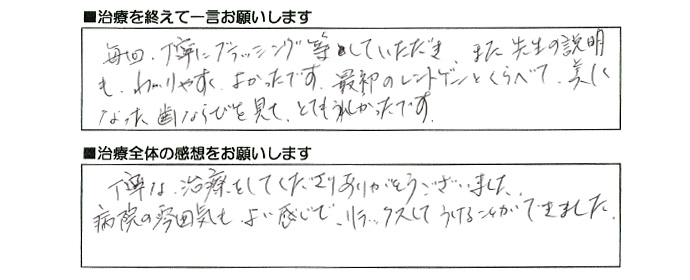 ■治療を終えて一言お願いします
毎回、丁寧にブラッシング等していただき、また先生の説明
も、わかりやすく、よかったです。最初のレントゲンとくらべて、美しく
なった歯ならびを見て、とてもうれしかったです。
■治療全体の感想をお願いします
丁寧な、治療をしてくださりありがとうございました。
病院の雰囲気も、よい感じで、リラックスしてうけることができました。